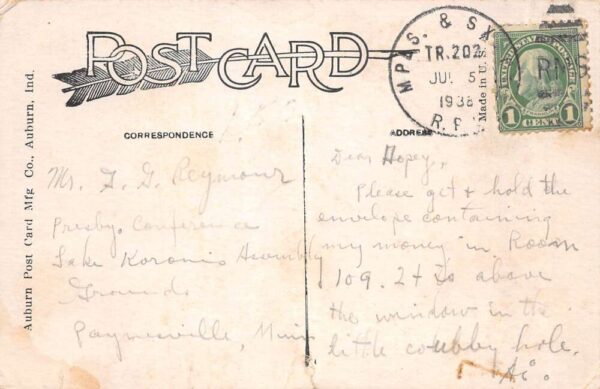 POST CARD
MPLS. & SX.
TR.202
JUL 5
1938
R.P.
RMS
1 CENT 1
Made in U.S.
CORRESPONDENCE
ADDRESS
Auburn Post Card Mfg Co., Auburn, Ind.
Mr. F. G. Reymour
Presby. Conference
Lake Koronis Assembly
Grounds
Paynesville, Minn
Dear Hopey,
Please get & hold the
envelope containing
my money in Room
109. It is above
the window in the
little cubby hole.